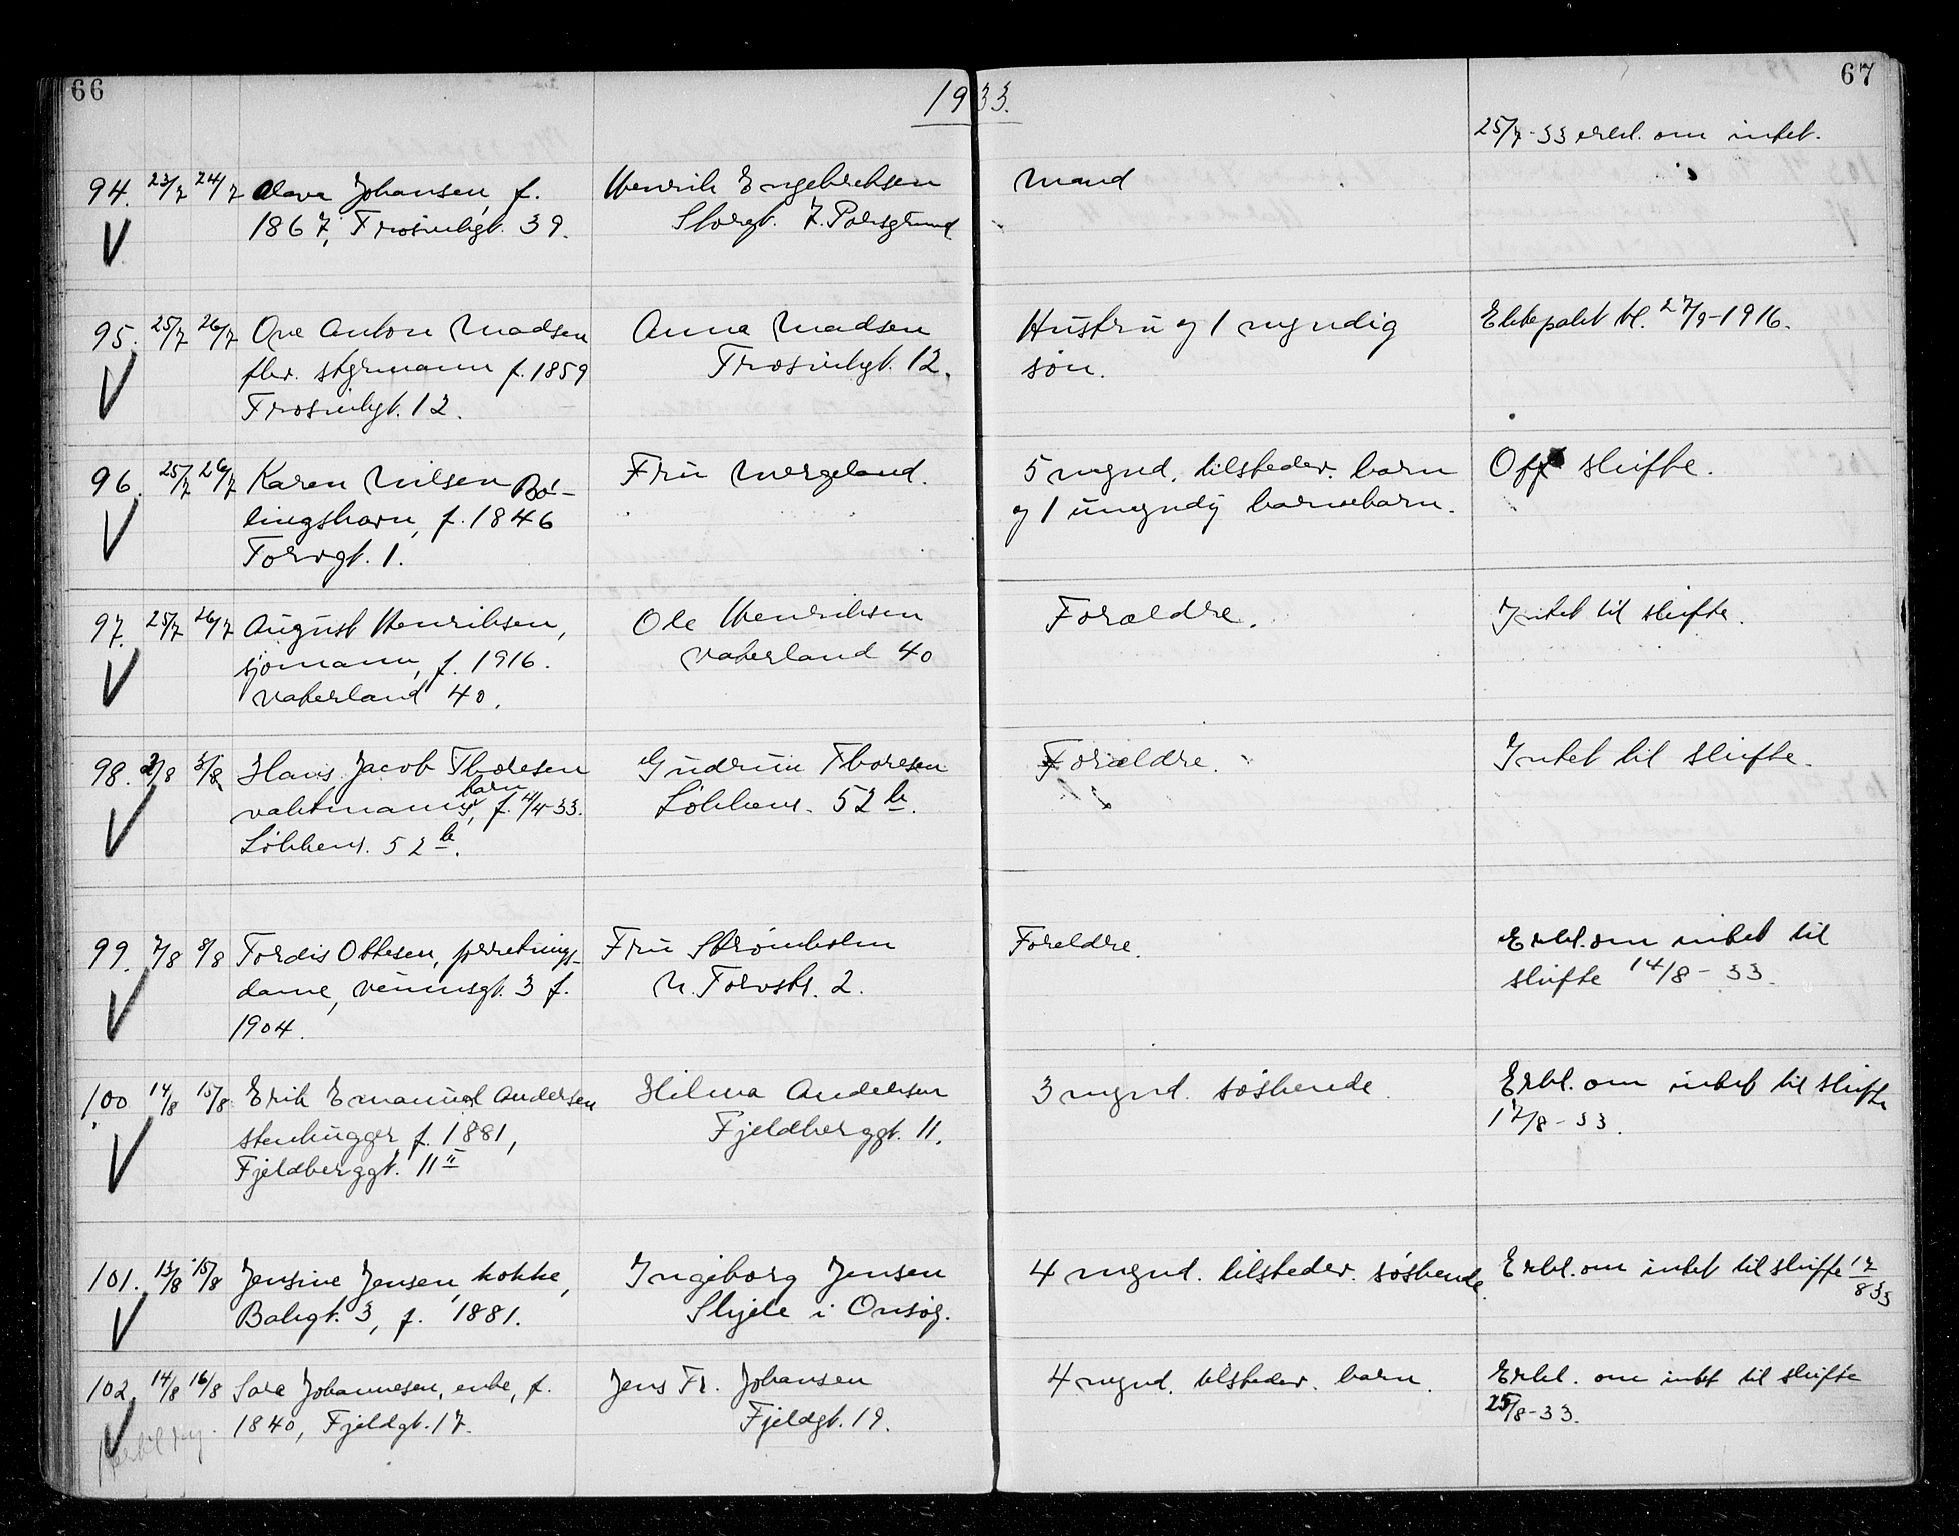 66
67
1933.
25/7-33 erkl. om intet.
94. 23/7 24/7 Olava Johansen, f. Henrik Engebretsen Mand
1867, Frosvinlgt. 39. Storgt. 7. Porsgrund
95. 25/7 26/7 Ove Anton Madsen Anna Madsen Hustru og 1 myndig Ektepakt tl. 27/9-1916.
fhv. styrmann f. 1859 Trosvinlgt. 12. søn.
Trosvinlgt. 12.
96. 25/7 26/7 Karen Nilsen Bø- Fru Mergeland. 5 mynd. tilsteder. barn Off. skifte.
lingshavn, f. 1846 og 1 umyndig barnebarn.
Torvgt. 1.
97. 25/7 26/7 August Henriksen, Ole Henriksen Forældre. Intet til skifte.
sjømann, f. 1916. Vaterland 40
Vaterland 40.
98. 2/8 3/8 Hans Jacob Thoresen Gudrun Thoresen Forældre. Intet til skifte.
vaktmanns barn, f. 4/4-33. Løkkens. 52 b.
Løkkens. 52 b.
99. 7/8 8/8 Tordis Ottesen, forretnings- Fru Strømholm Foreldre. Erkl. om intet til
dame, 3 f. N. Torvstr. 2. skifte 14/8-33.
1904.
100 14/8 15/8 Erik Emanuel Andersen Hilma Andersen 3 mynd. søskende. Erkl. om intet til skifte
stenhugger f. 1881, Fjeldberggt. 11. 17/8-33.
Fjeldberggt. 11 II
101. 13/8 15/8 Jensine Jensen, kokke, Ingeborg Jensen 4 mynd. tilsteder. søskende. Erkl. om intet til skifte 17/8 33
Bakgt. 3, f. 1881. Skjele i Onsøy.
102. 14/8 16/8 Sara Johannesen, enke, f. Jens Fr. Johansen 4 mynd. tilsteder. barn. Erkl. om intet til skifte
1840, Fjeldgt. 17. Fjeldgt. 19. 25/8-33.